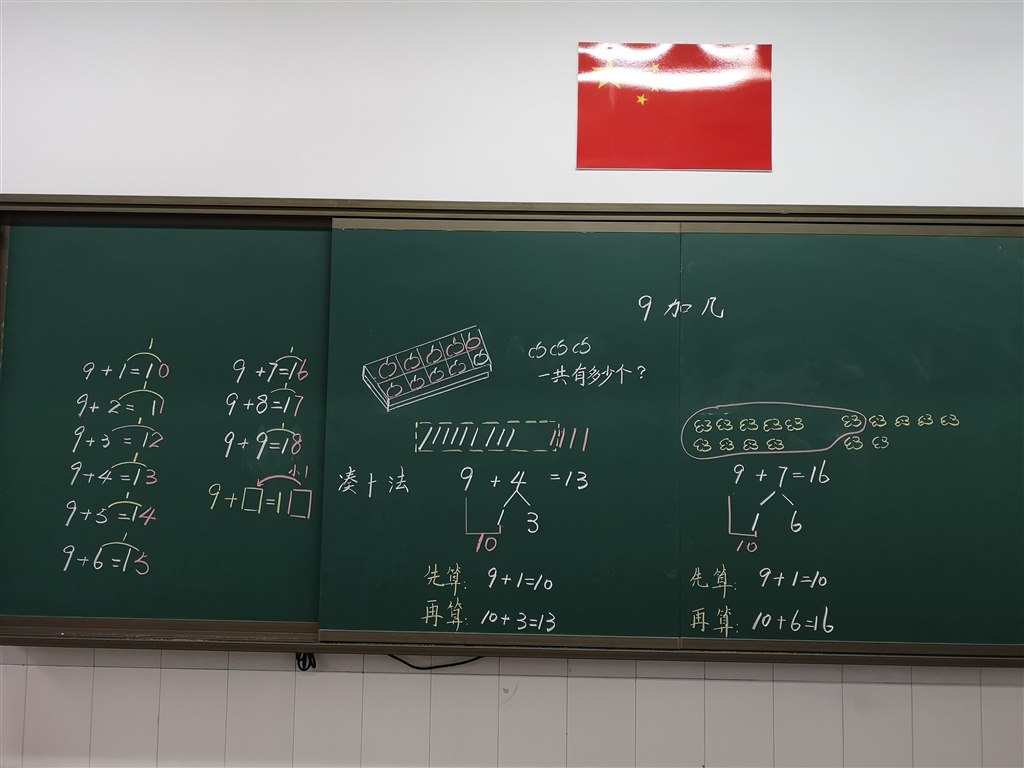 9加几
1
9+1=10
1
9+2=11
1
9+3=12
1
9+4=13
1
9+5=14
1
9+6=15
1
9+7=16
9+8=17
9+9=18
小1
9+□=1□
一共有多少个？
凑十法
9+4=13
1 3
10
先算：9+1=10
再算：10+3=13
9+7=16
1 6
10
先算：9+1=10
再算：10+6=16